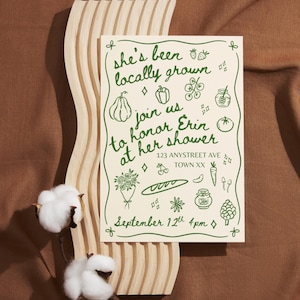 she's been
locally grown
join us
to honor Erin
at her shower
123 ANYSTREET AVE
TOWN XX
September 12th 4pm